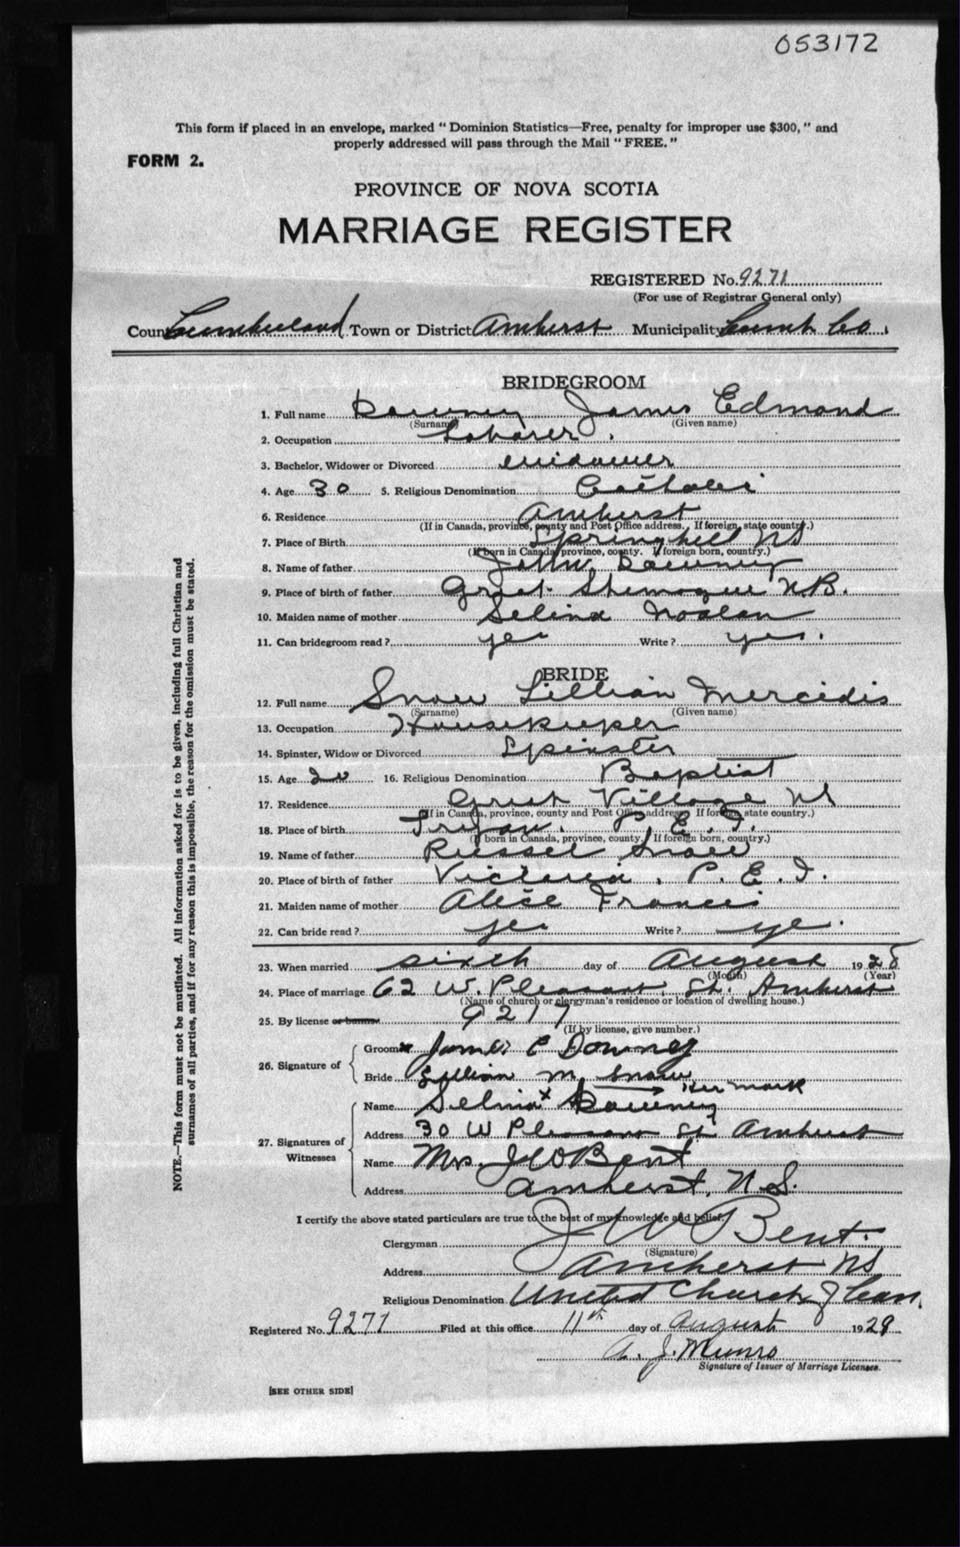 053172
This form if placed in an envelope, marked "Dominion Statistics—Free, penalty for improper use $300," and
properly addressed will pass through the Mail "FREE."
FORM 2.
PROVINCE OF NOVA SCOTIA
MARRIAGE REGISTER
REGISTERED No. 9271
(For use of Registrar General only)
County Cumberland Town or District Amherst Municipality Cumb. Co.
BRIDEGROOM
1. Full name Downey James Edmond
(Surname) (Given name)
2. Occupation Laborer.
3. Bachelor, Widower or Divorced Widower
4. Age 30 5. Religious Denomination Catholic
6. Residence Amherst
(If in Canada, province, county and Post Office address. If foreign, state country.)
7. Place of Birth Springhill NS
(If born in Canada, province, county. If foreign born, country.)
8. Name of father John Downey
9. Place of birth of father Great Shemogue N.B.
10. Maiden name of mother Selina
11. Can bridegroom read? yes Write? yes.
BRIDE
12. Full name Snow Lillian Mercidis
(Surname) (Given name)
13. Occupation Housekeeper
14. Spinster, Widow or Divorced Spinster
15. Age 20 16. Religious Denomination Baptist
17. Residence Great Village NS
(If in Canada, province, county and Post Office address. If foreign, state country.)
18. Place of birth Tryon. P.E.I.
(If born in Canada, province, county. If foreign born, country.)
19. Name of father Russel Snow
20. Place of birth of father Victoria, P.E.I.
21. Maiden name of mother Alice Francis
22. Can bride read? yes Write? yes.
23. When married sixth day of August 1928
(Month) (Year)
24. Place of marriage 62 W. Pleasant St. Amherst
(Name of church or clergyman's residence or location of dwelling house.)
25. By license or banns 9217
(If by license, give number.)
26. Signature of Groom James E Downey
Bride Lillian M. Snow
her mark
27. Signatures of Witnesses Name Selina x Downey
Address 30 W Pleasant St Amherst
Name Mrs. J W Bent
Address Amherst, N.S.
I certify the above stated particulars are true to the best of my knowledge and belief.
Clergyman J W Bent.
(Signature)
Address Amherst NS
Religious Denomination United Church of Can.
Registered No. 9271 Filed at this office 11th day of August 1929
A. J. Munro
Signature of Issuer of Marriage Licenses.
[SEE OTHER SIDE]
NOTE.—This form must not be mutilated. All information asked for is to be given, including full Christian and
surnames of all parties, and if for any reason this is impossible, the reason for the omission must be stated.